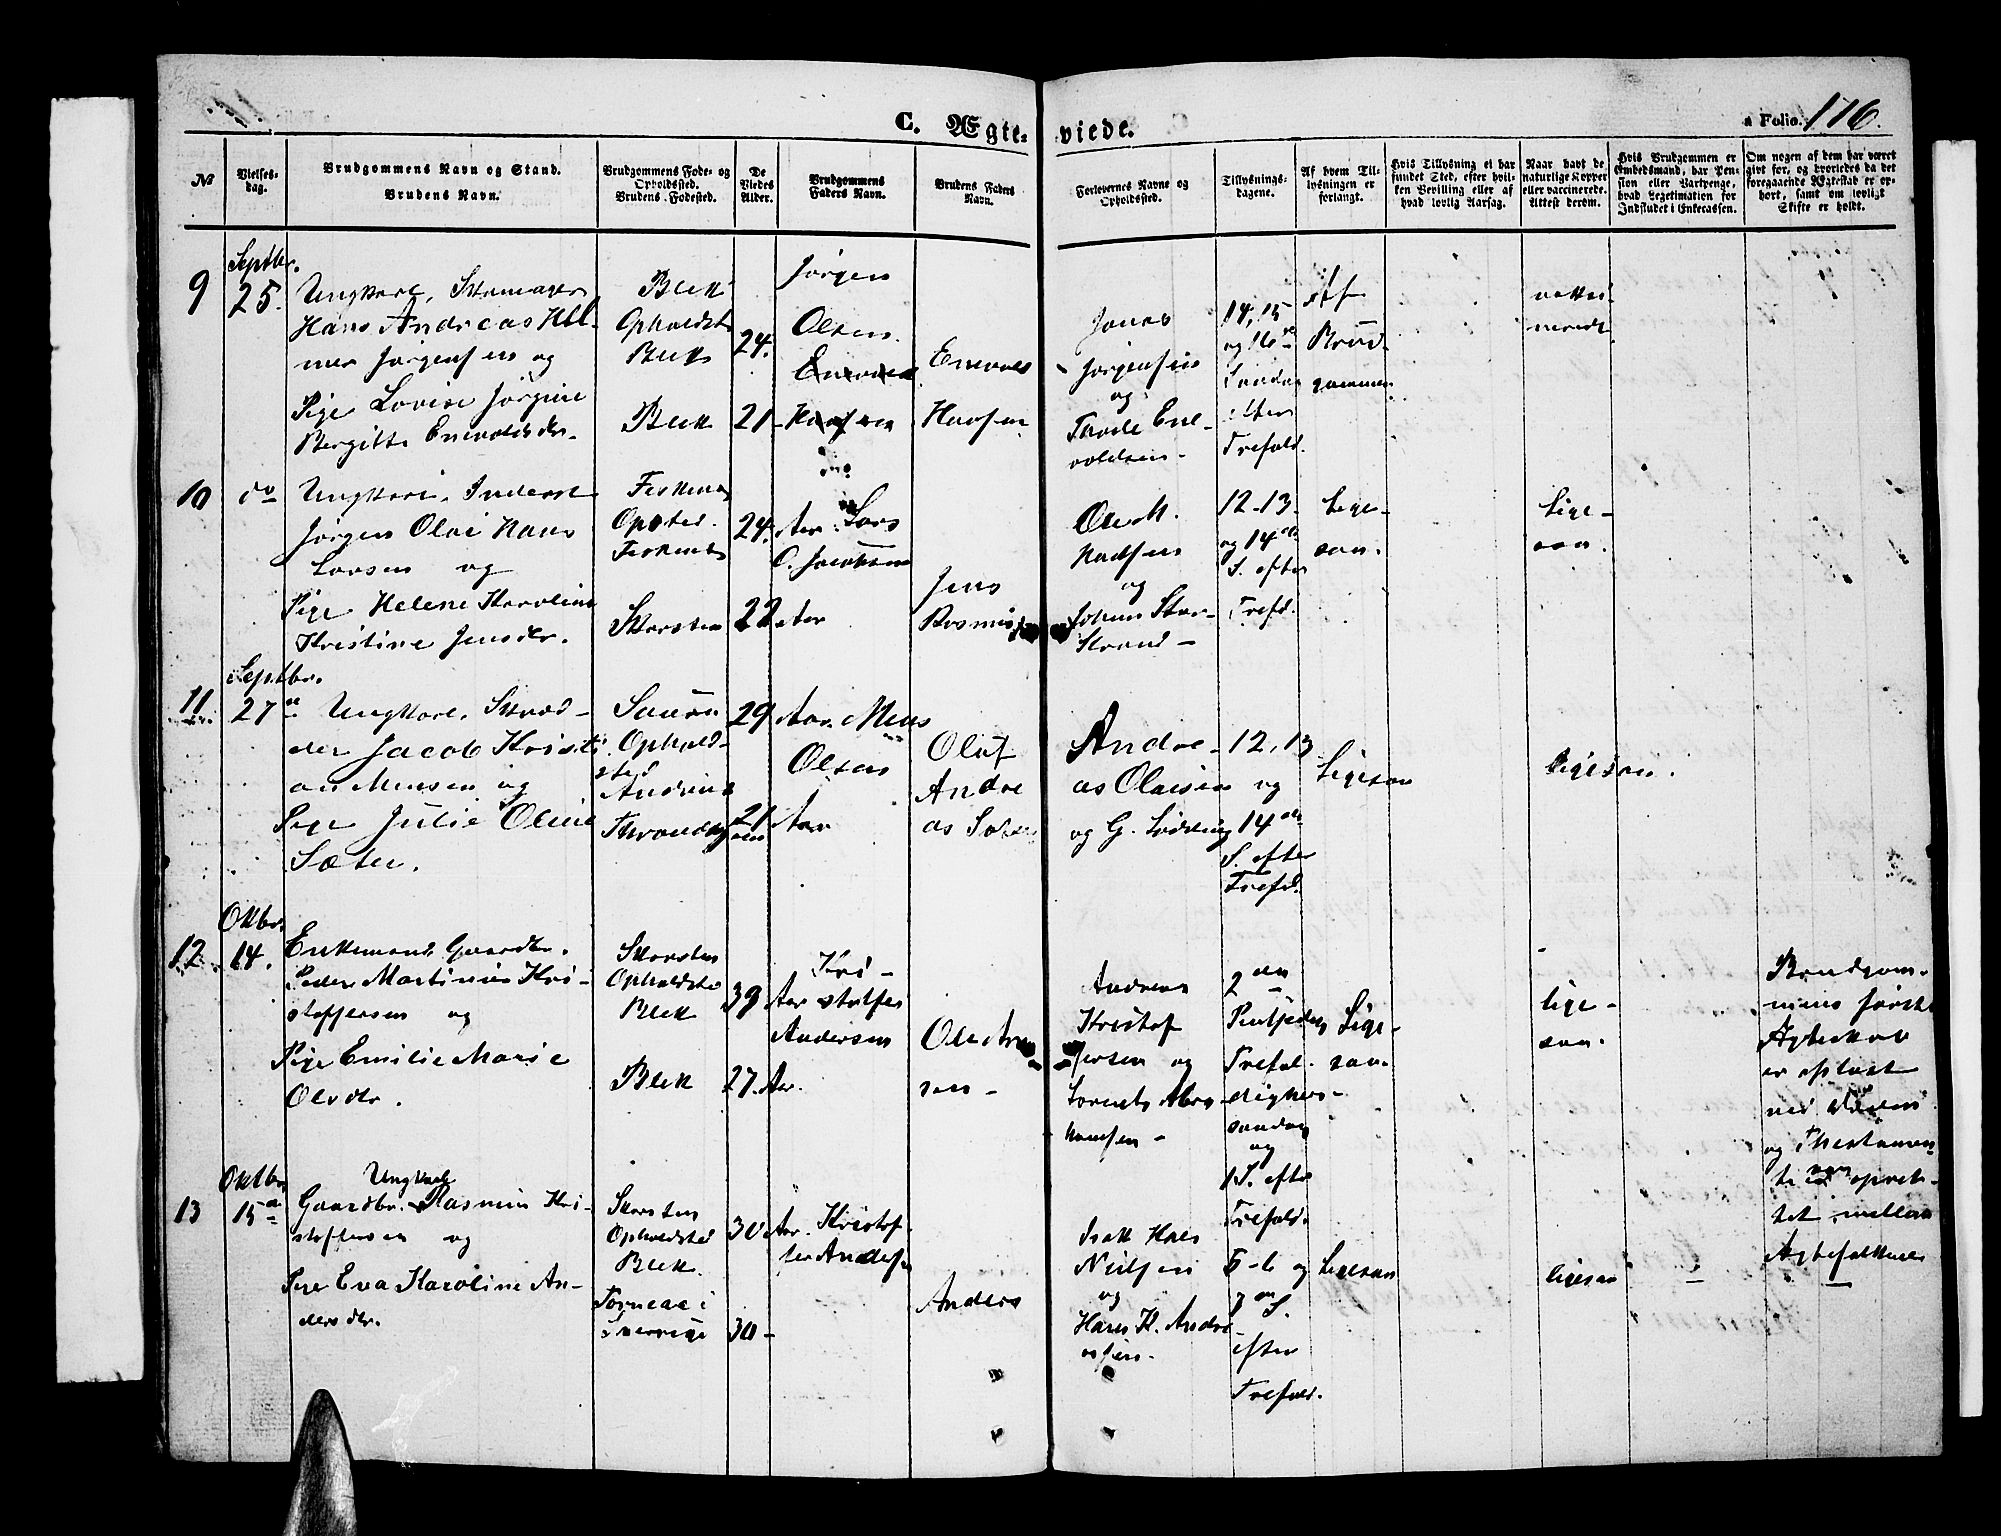 C. Ægte-viede.
a Folio. 176.
№
Vielses-
dag.
Brudgommens Navn og Stand.
Brudens Navn.
Brudgommens Føde- og
Opholdssted.
Brudens Fødested.
De
Viedes
Alder.
Brudgommens
Faders Navn.
Brudens Faders
Navn.
Forlovernes Navne og
Opholdssted.
Tillysnings-
dagene.
Af hvem Til-
lysningen er
forlangt.
Hvis Tillysning ei har
fundet Sted, efter hvil-
ken Bevilling eller af
hvad lovlig Aarsag.
Naar havt de
naturlige Kopper
eller vaccinerede.
Attest derom.
Hvis Brudgommen er
Embedsmand, har Pen-
sion eller Vartpenge,
hvad Legetimation for
Indskudet i Enkecassen.
Om nogen af dem har været
gift før, og hvorledes da det
foregaaende Ægteskab er op-
hørt, samt om lovligt
Skifte er holdt.
9
Septbr.
25.
Ungkarl, Skomager
Hans Andreas Hil-
mer Jørgensen og
Pige Lovise Jørgine
Bergitte Enevoldsdr.
Blek
Opholdst
Blek
Blek
24.
21
Jørgen
Olsen
Enevold
Hansen
Jonas
Jørgensen
og
Tarde Ene-
voldsen
14, 15
og 16de
Søndag
efter
Trefold.
Af
Brud-
gommen
vakci-
neredt
10
do
Ungkarl, Inderst
Jørgen Olai Hans
Larsen og
Pige Helene Karoline
Kristine Jensdr.
Opsted.
Skorsten
24.
22
Aar
Aar
Lars
O. Jacobsen
Jens
Ole M.
Madsen
og
Johan Stor-
Strand
12-13.
og 14de
S. efter
Trefd.
Lige-
saa.
Lige-
saa.
11
Septbr.
27
Ungkarl,
Jacob Kristi
an Monsen og
Pige Julie Oline
Sæter.
Ophold-
sted
29
21
Aar.
Aar
Mons
Olsen
Oluf
Andre
as Sæter
Andre-
as Olaisen
og G. Lødding
12, 13
og
14de
S. efter
Trefd.
Ligesaa
ligesaa.
12
Oktbr.
14.
Enkemand, Gaardbr.
Peder Martinus Kri-
stoffersen og
Pige Emilie Marie
Olsdtr.
Skorsten
Opholdste
Blek
Blek
39
27.
Aar
Aar.
Kri-
stoffer
Andersen
Ole
sen
Andreas
Kristof
fersen og
Lorents Abra-
hamsen
2den
Trefol-
digheds-
søndag
og
1 S. efter
Trefold.
Lige-
saa.
lige-
saa.
Brudgom-
mens første
Ægteskab
er opløst
ved Døden
og Thestamen-
te er opret-
tet mellem
Ægtefolkene
13
Oktbr.
15
Ungkarl
Gaardbr. Rasmus Kri-
stoffersen og
Pige Eva Karoline An-
dersdr.
Skorsten
Opholdsted
Blek.
Torneaa i
Sverrige
30
30
Aar.
Kristof-
fer Anders
Anders
Isak Hals
Nielsen
og
Hans K. Andre
assen
5-6 og
7de S.
efter
Trefold.
Ligesaa
ligesaa